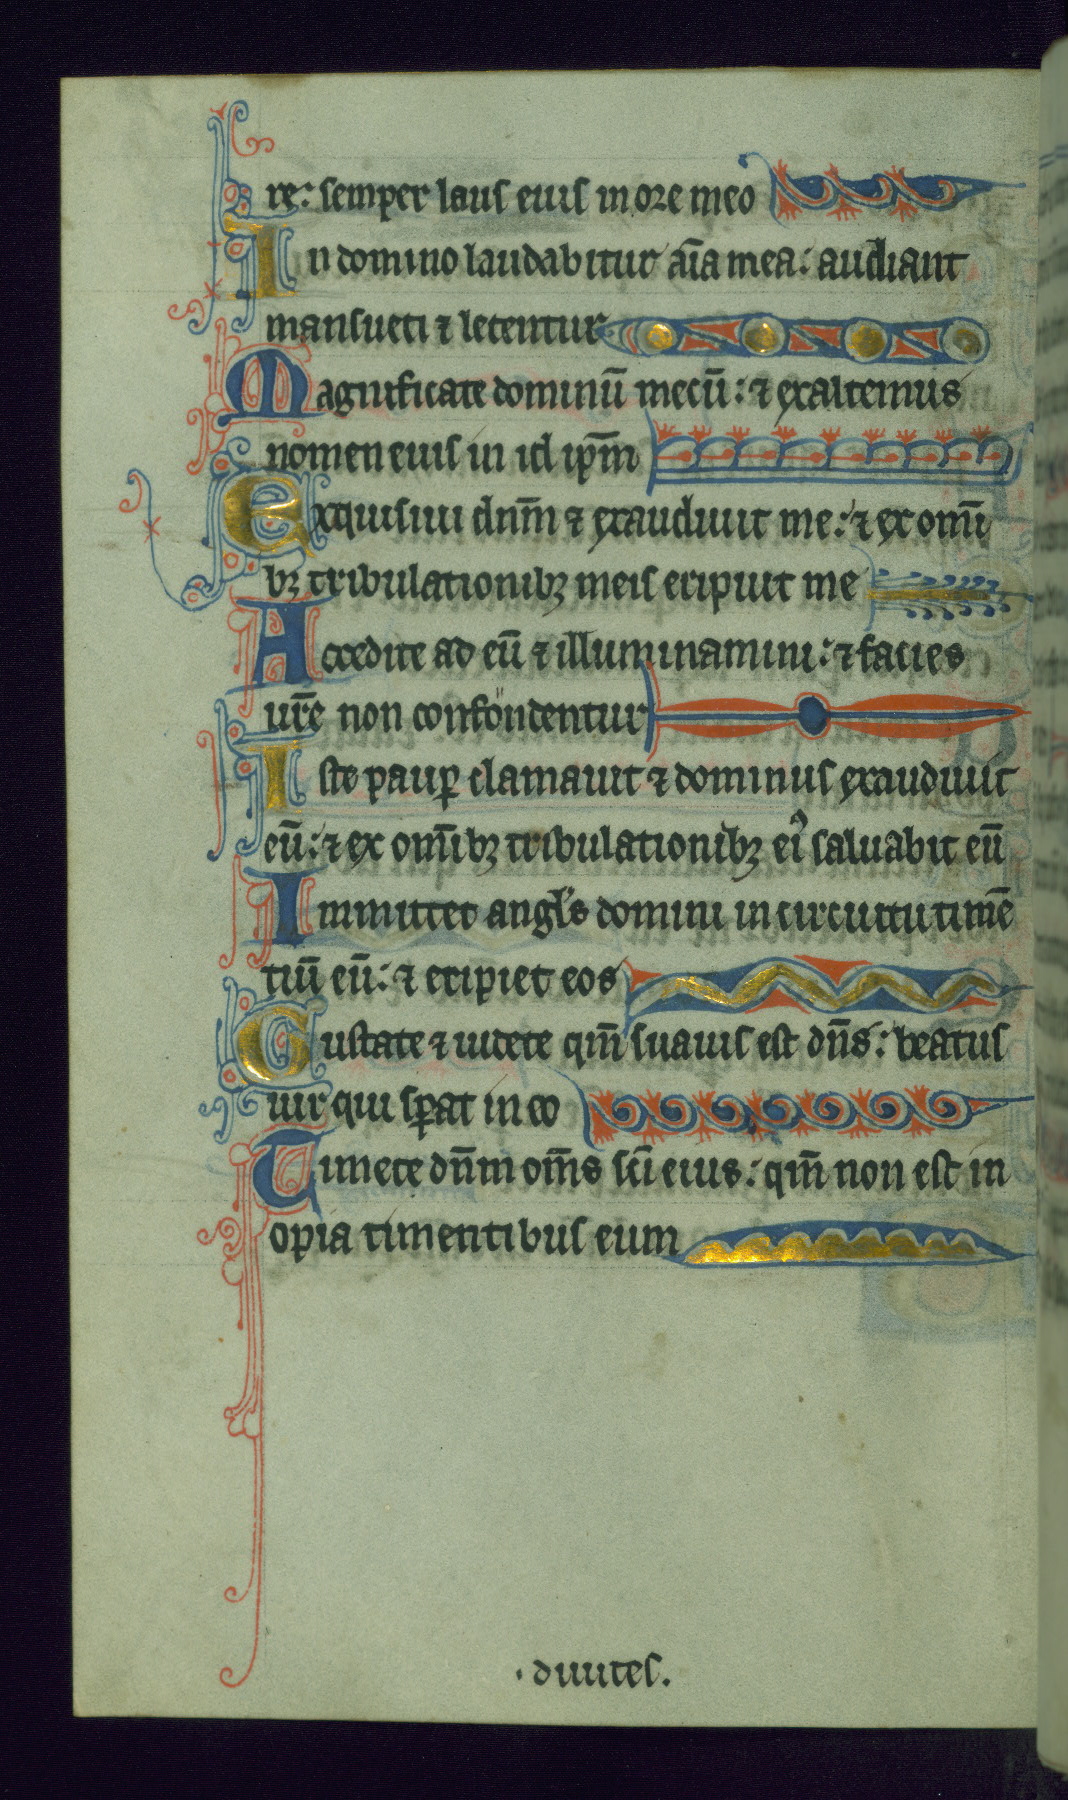 re: semper laus eius in ore meo
In domino laudabitur aīa mea: audiant
mansueti ⁊ letentur
Magnificate dominū mecū: ⁊ exaltemus
nomen eius in id ip̄m
Exquisiui dnm̄ ⁊ exaudiuit me: ⁊ ex omni
bꝫ tribulationibꝫ meis eripiuit me
Accedite ad eū ⁊ illuminamini: ⁊ facies
ur̄e non confondentur
Iste paup̲ clamauit ⁊ dominus exaudiuit
eū: ⁊ ex om̄ibꝫ tribulationibꝫ ei᾽ saluabit eū
Inmittet angl's domini in circuitu timē
tiū eū: ⁊ eripiet eos
Gustate ⁊ uidete qm̄ suauis est dn̄s: beatus
uir qui sp̲at in eo
Timete dn̄m om̄s sc̄i eius: qm̄ non est in
opia timentibus eum
·diuites.